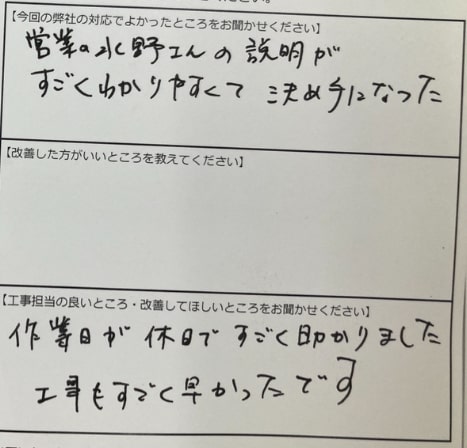 【今回の弊社の対応でよかったところをお聞かせください】
営業の水野さんの説明が
すごくわかりやすくて 決め手になった
【改善した方がいいところを教えてください】
【工事担当の良いところ・改善してほしいところをお聞かせください】
作業日が 休日で すごく助かりました
工事もすごく早かったです